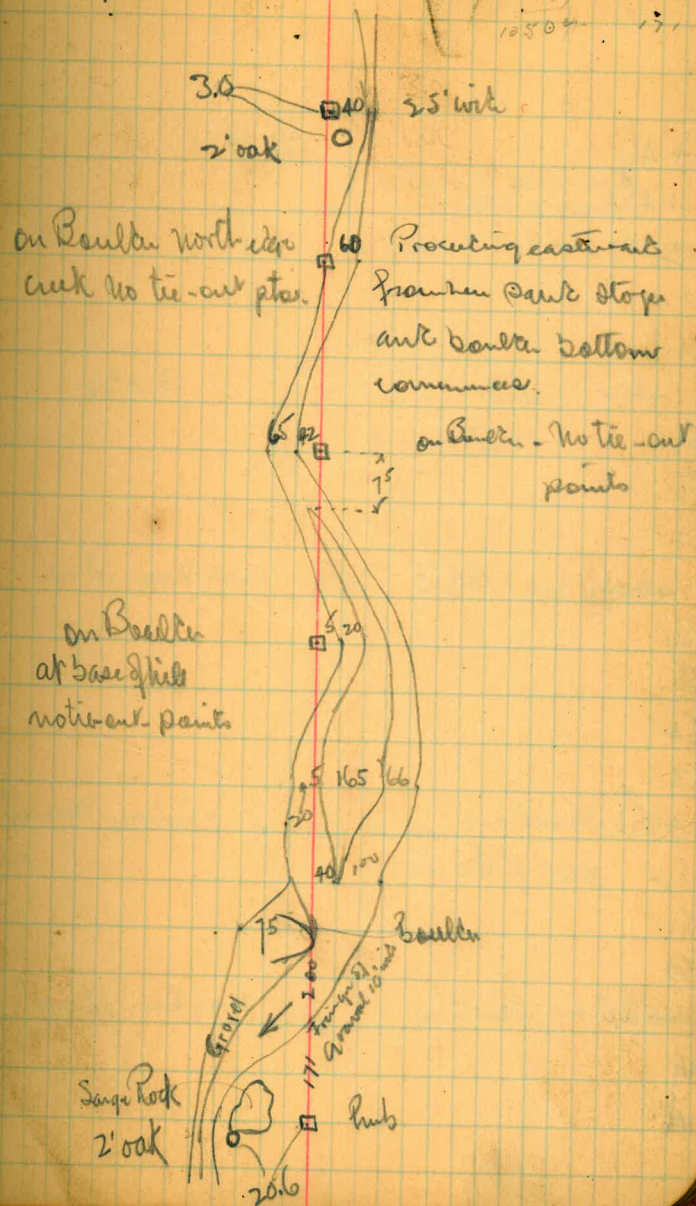 3.0
40
25' wide
2' oak
on Boulder north edge
creek no tie-out ptos.
60
Proceeding eastward
from here sand stops
and boulder bottom
commences.
65 42
on Boulder - No tie-out
points
75
5 20
on Boulder
at base of hill
no tie-out points
5 165 66
20
40 100
75
Boulder
200
Gravel
Fringe of
Gravel 10' wide
171'
Large Rock
2' oak
20.6